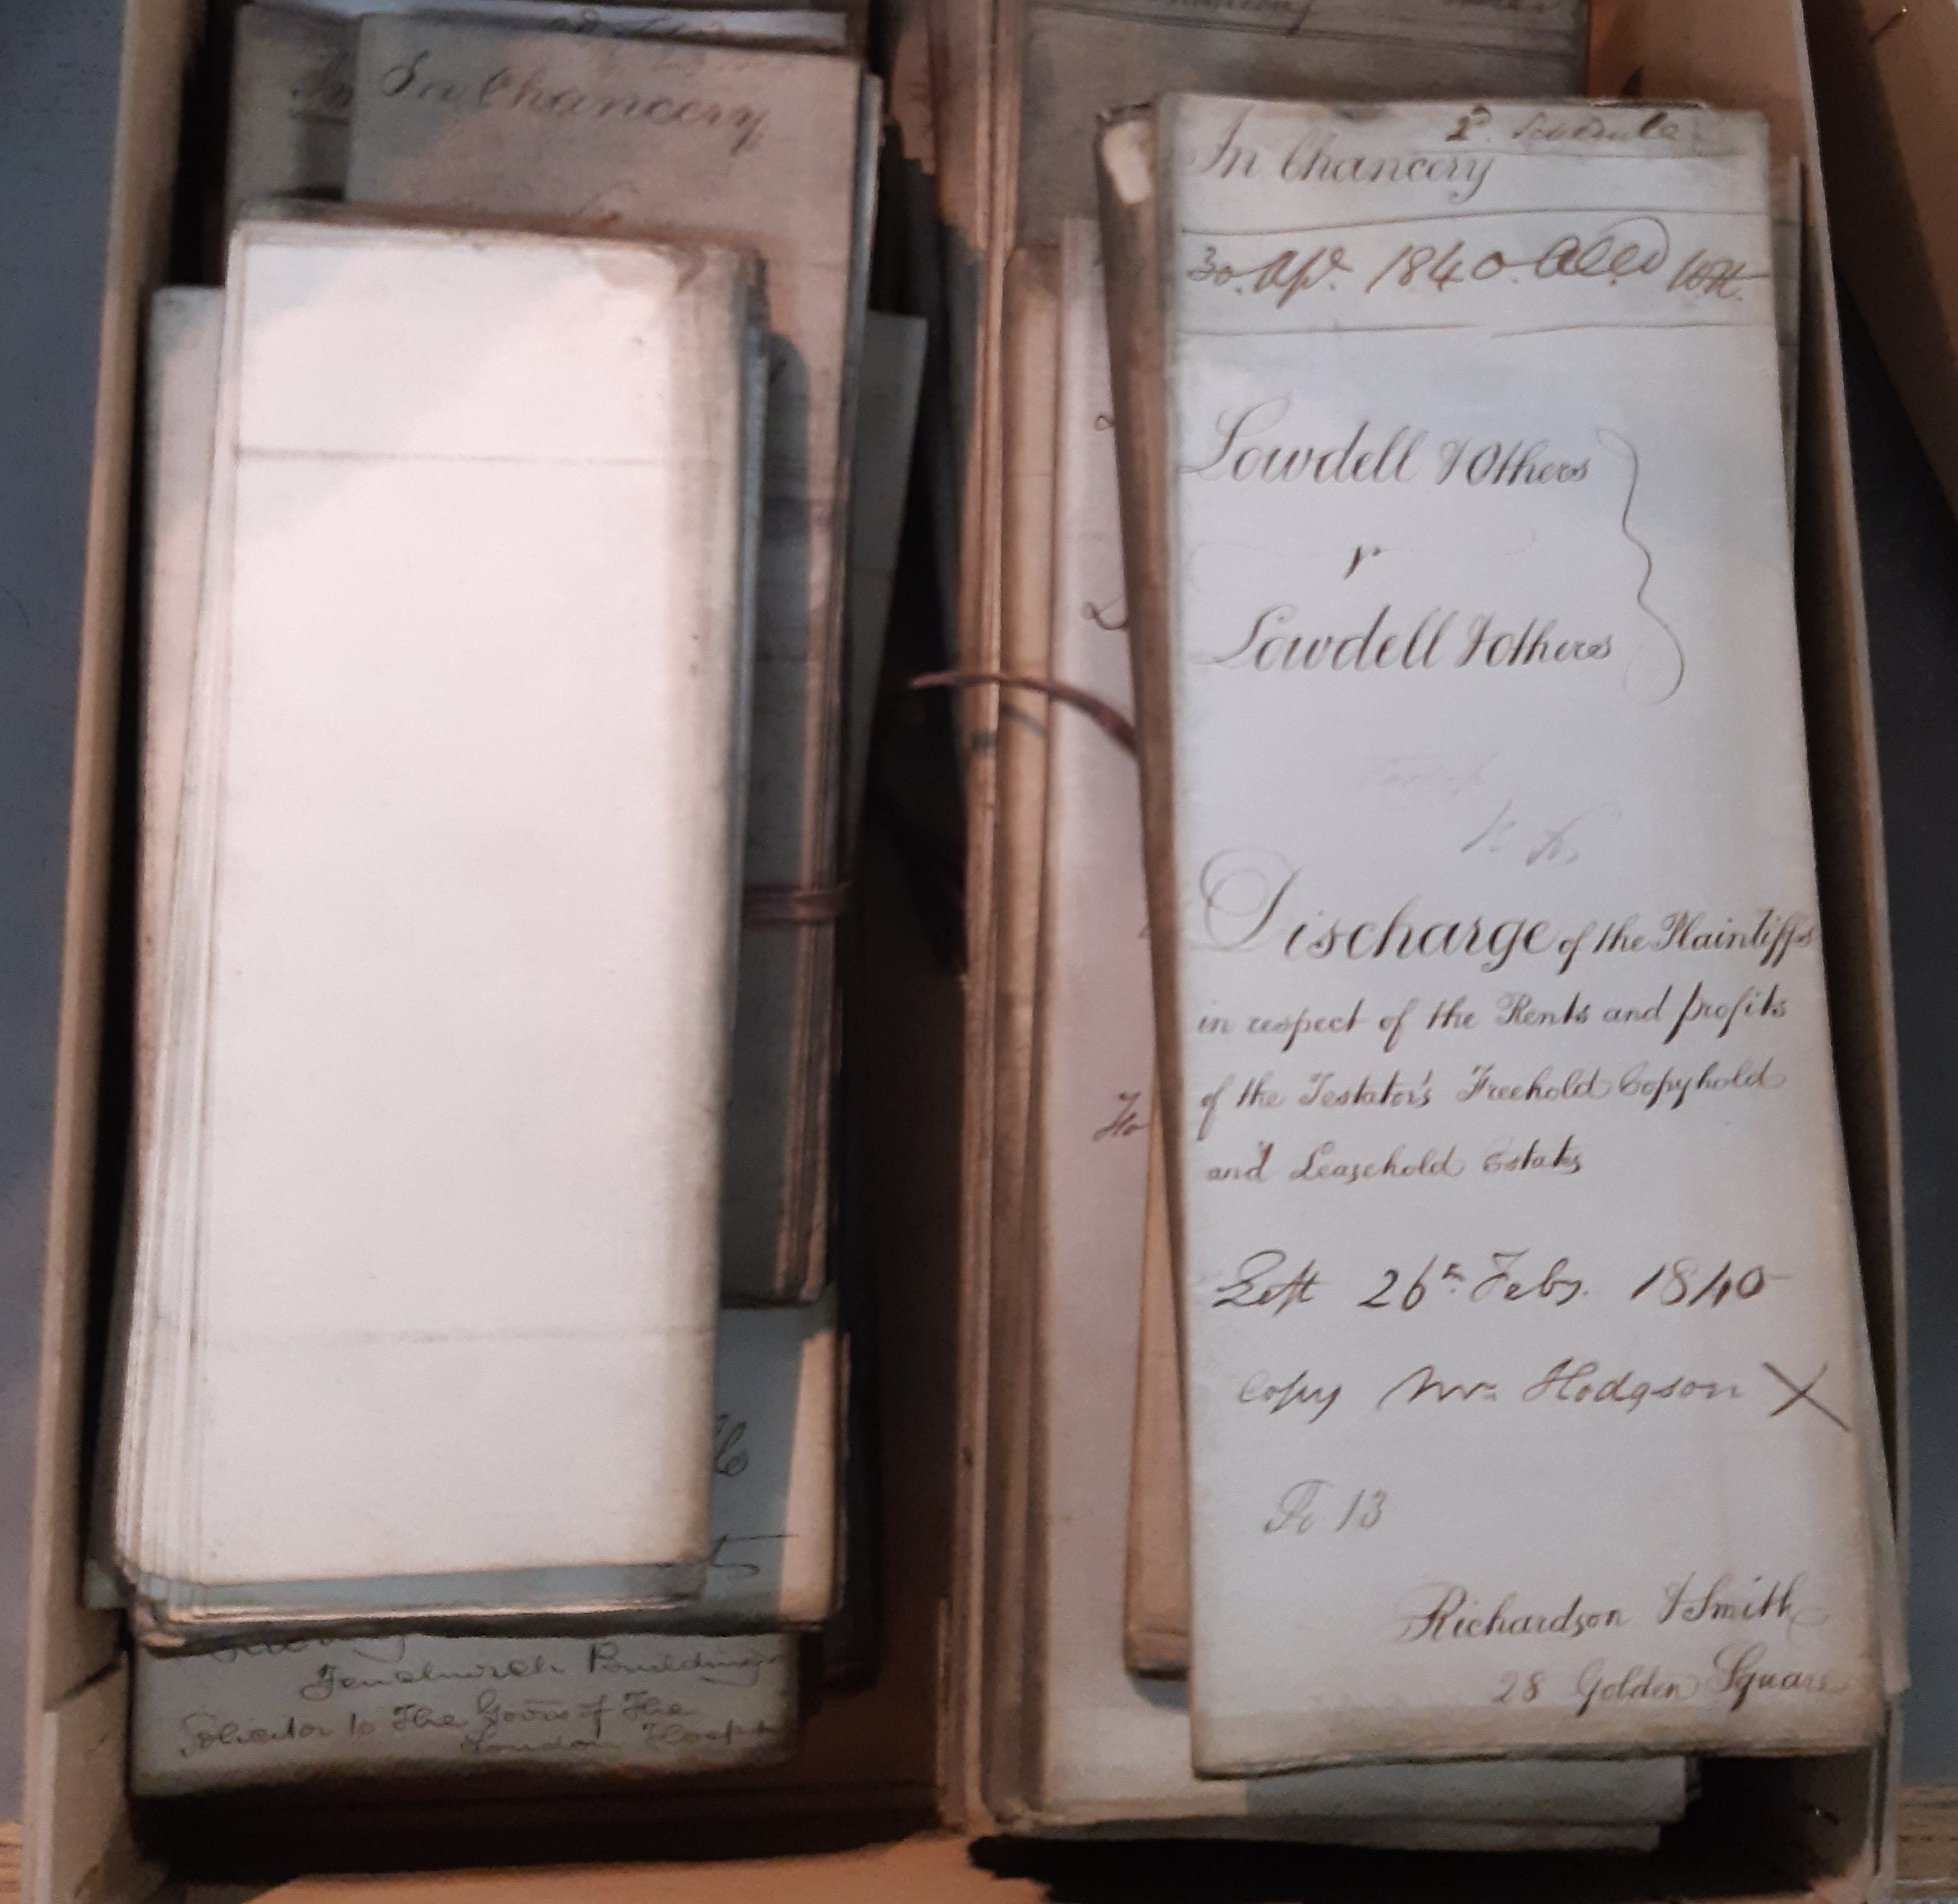 In Chancery
In Chancery
2d. Schedule
30. Apl. 1840.
Lowdell & Others
v
Lowdell & others
Discharge of the Plaintiffs
in respect of the Rents and profits
of the Testator's Freehold Copyhold
and Leasehold Estates
Left 26th Feby. 1840
Copy Mr. Hodgson X
Fo 13
Richardson & Smith
28 Golden Square
Fenchurch Buildings
Solicitor to The Govrs of The
London Hospl